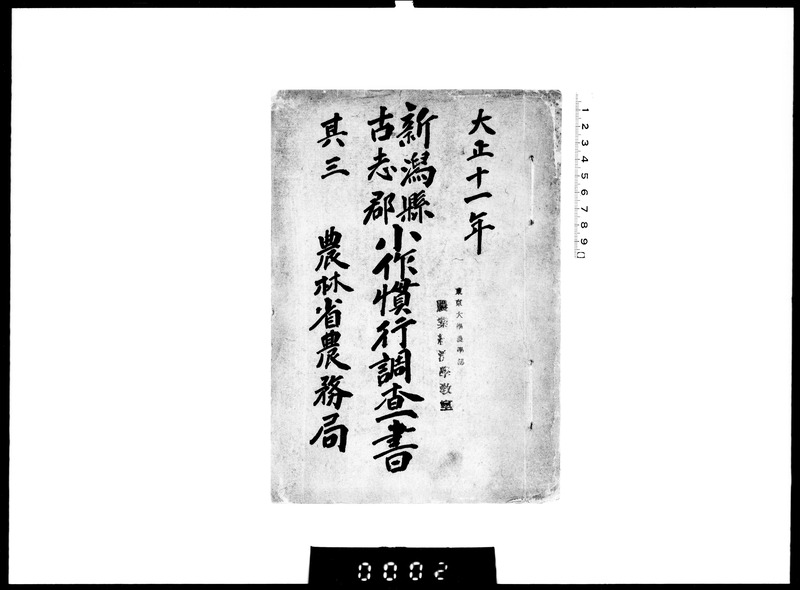 大正十一年
新潟縣
古志郡
小作慣行調査書
其三
農林省農務局
東京大學農學部
農業経済學教室
1 2 3 4 5 6 7 8 9
0002